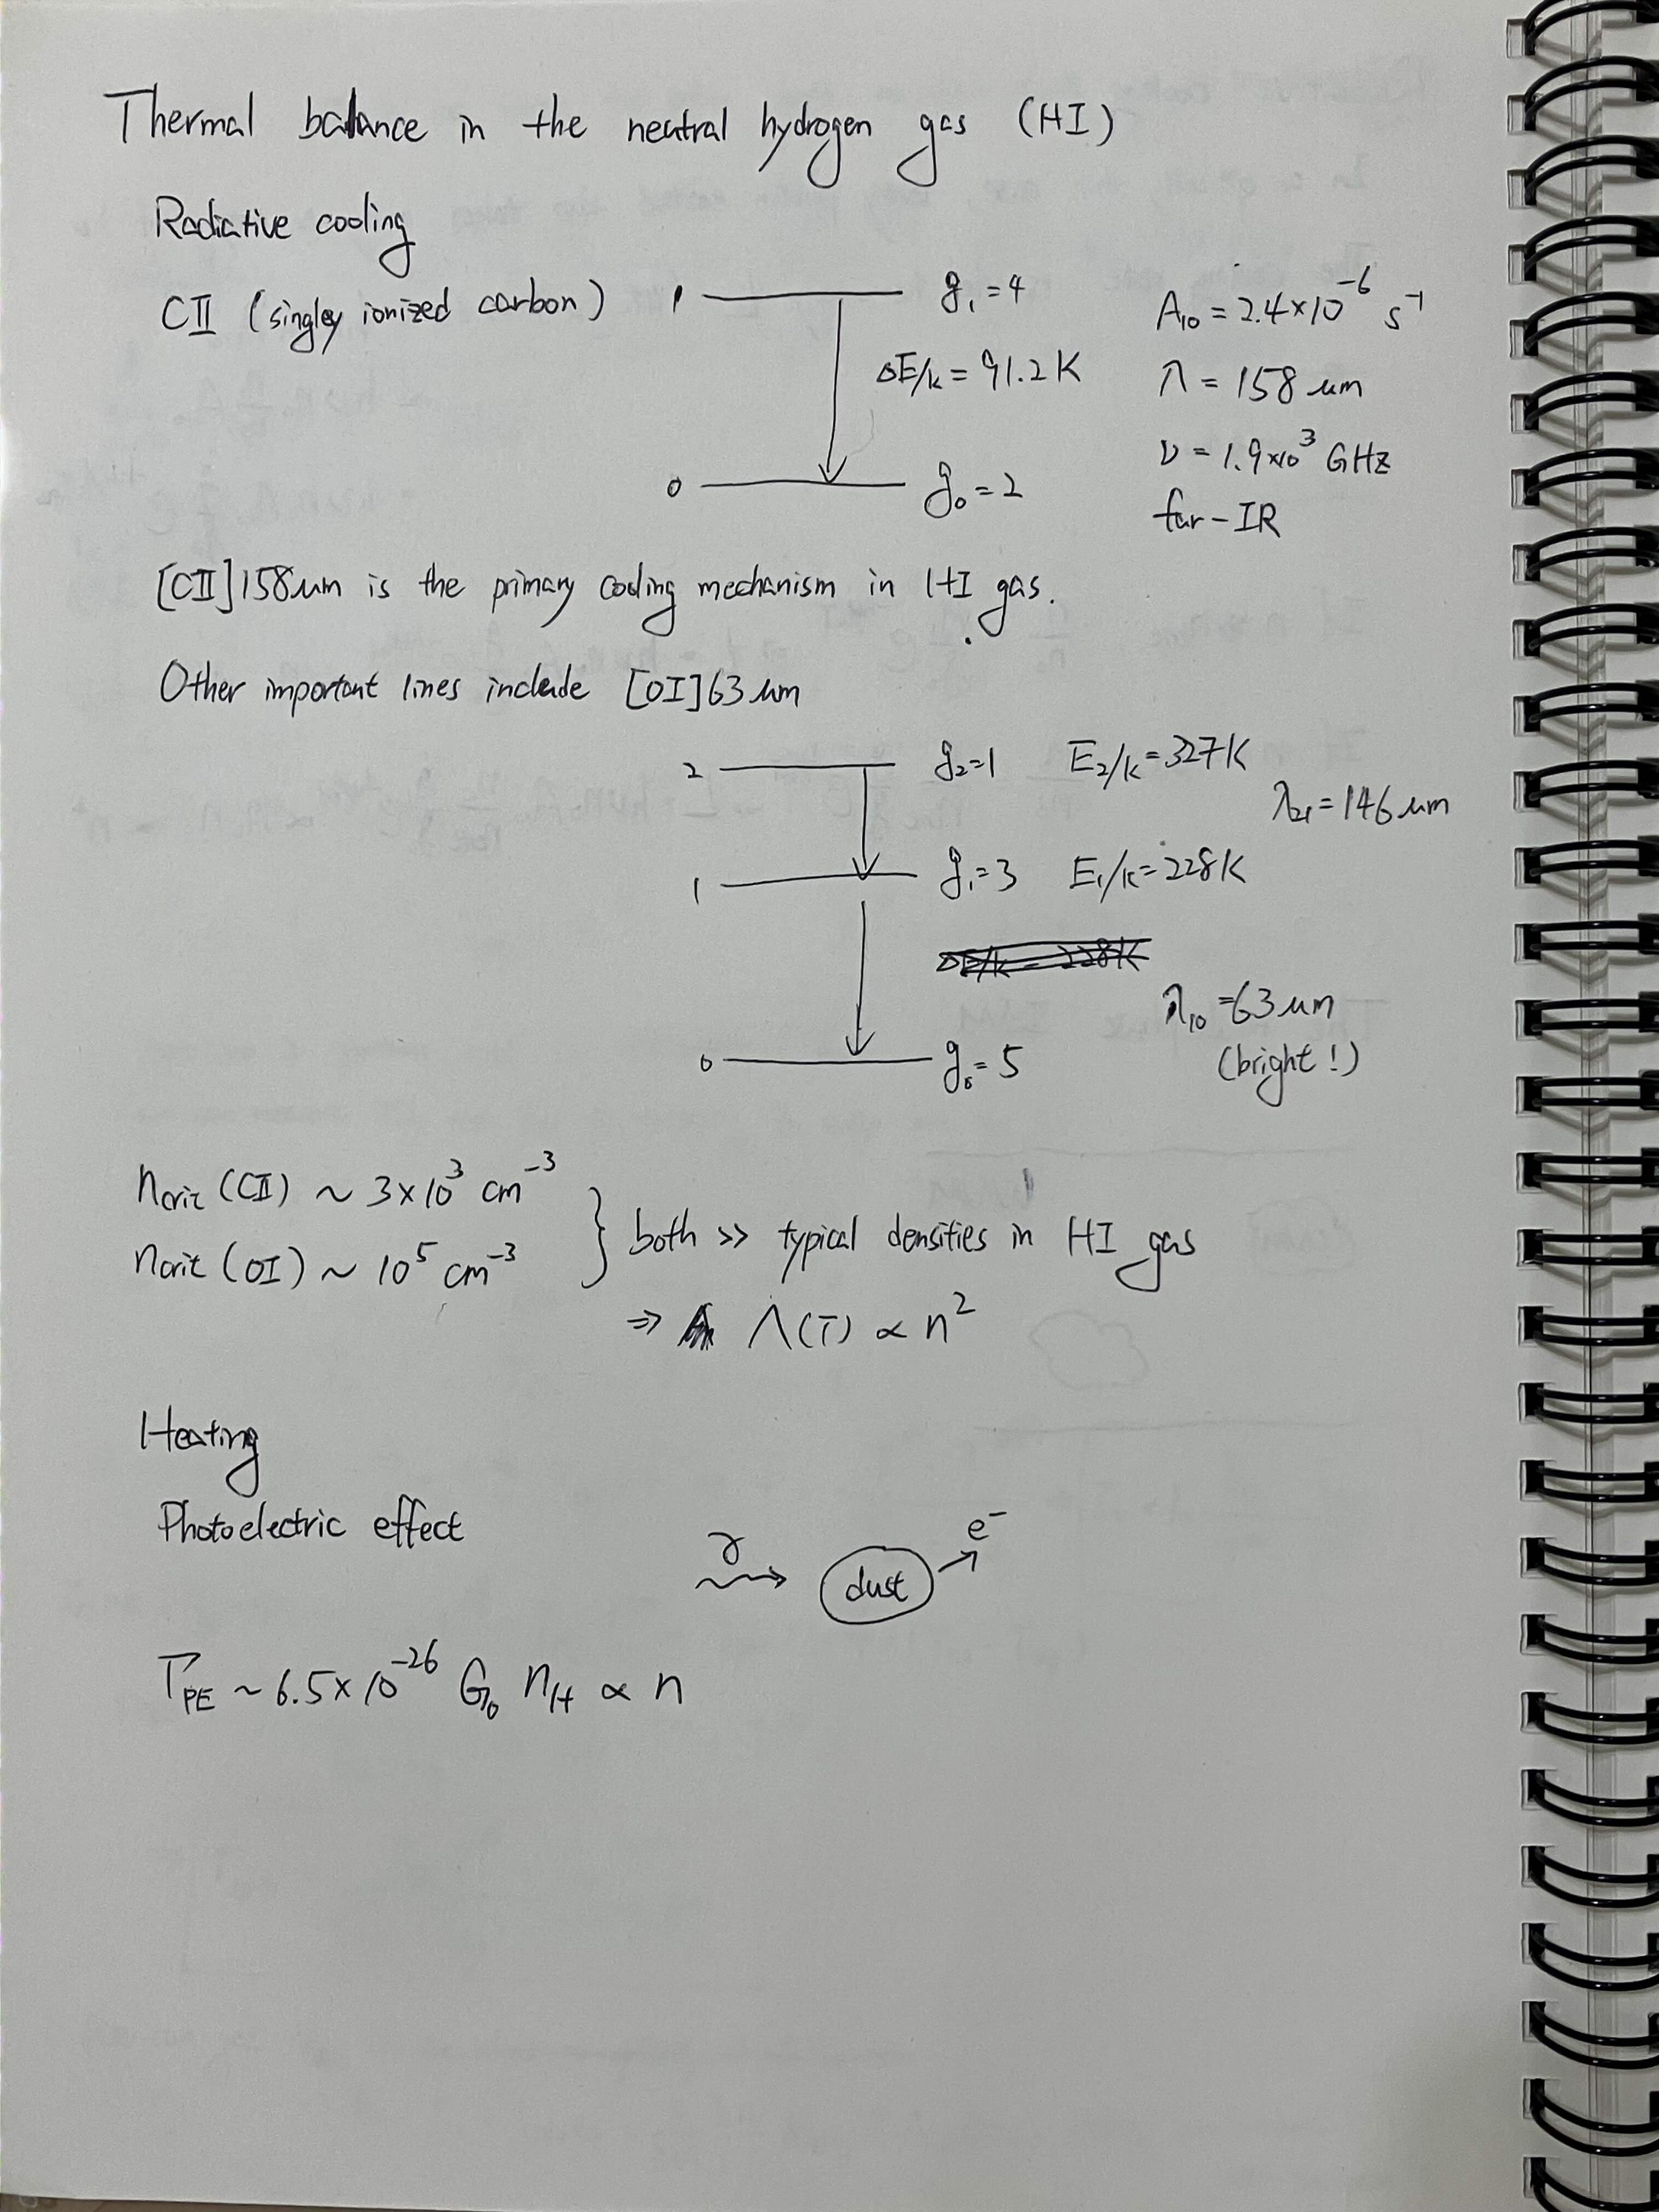 Thermal balance in the neutral hydrogen gas (HI)
Radiative cooling
CII (singley ionized carbon)
1 g₁ = 4
ΔE/k = 91.2 K
0 g₀ = 2
A₁₀ = 2.4×10⁻⁶ s⁻¹
λ = 158 μm
ν = 1.9×10³ GHz
far-IR
[CII]158μm is the primary cooling mechanism in HI gas.
Other important lines include [OI]63 μm
2 g₂=1 E₂/k=327K
λ₂₁=146 μm
1 g₁=3 E₁/k=228K
ΔE/k = 228K
λ₁₀=63 μm
(bright!)
0 g₀=5
ncrit (CII) ~ 3×10³ cm⁻³
ncrit (OI) ~ 10⁵ cm⁻³
} both >> typical densities in HI gas
⇒ Λ(T) ∝ n²
Heating
Photoelectric effect
γ dust e⁻
Γ_PE ~ 6.5×10⁻²⁶ G₀ n_H ∝ n